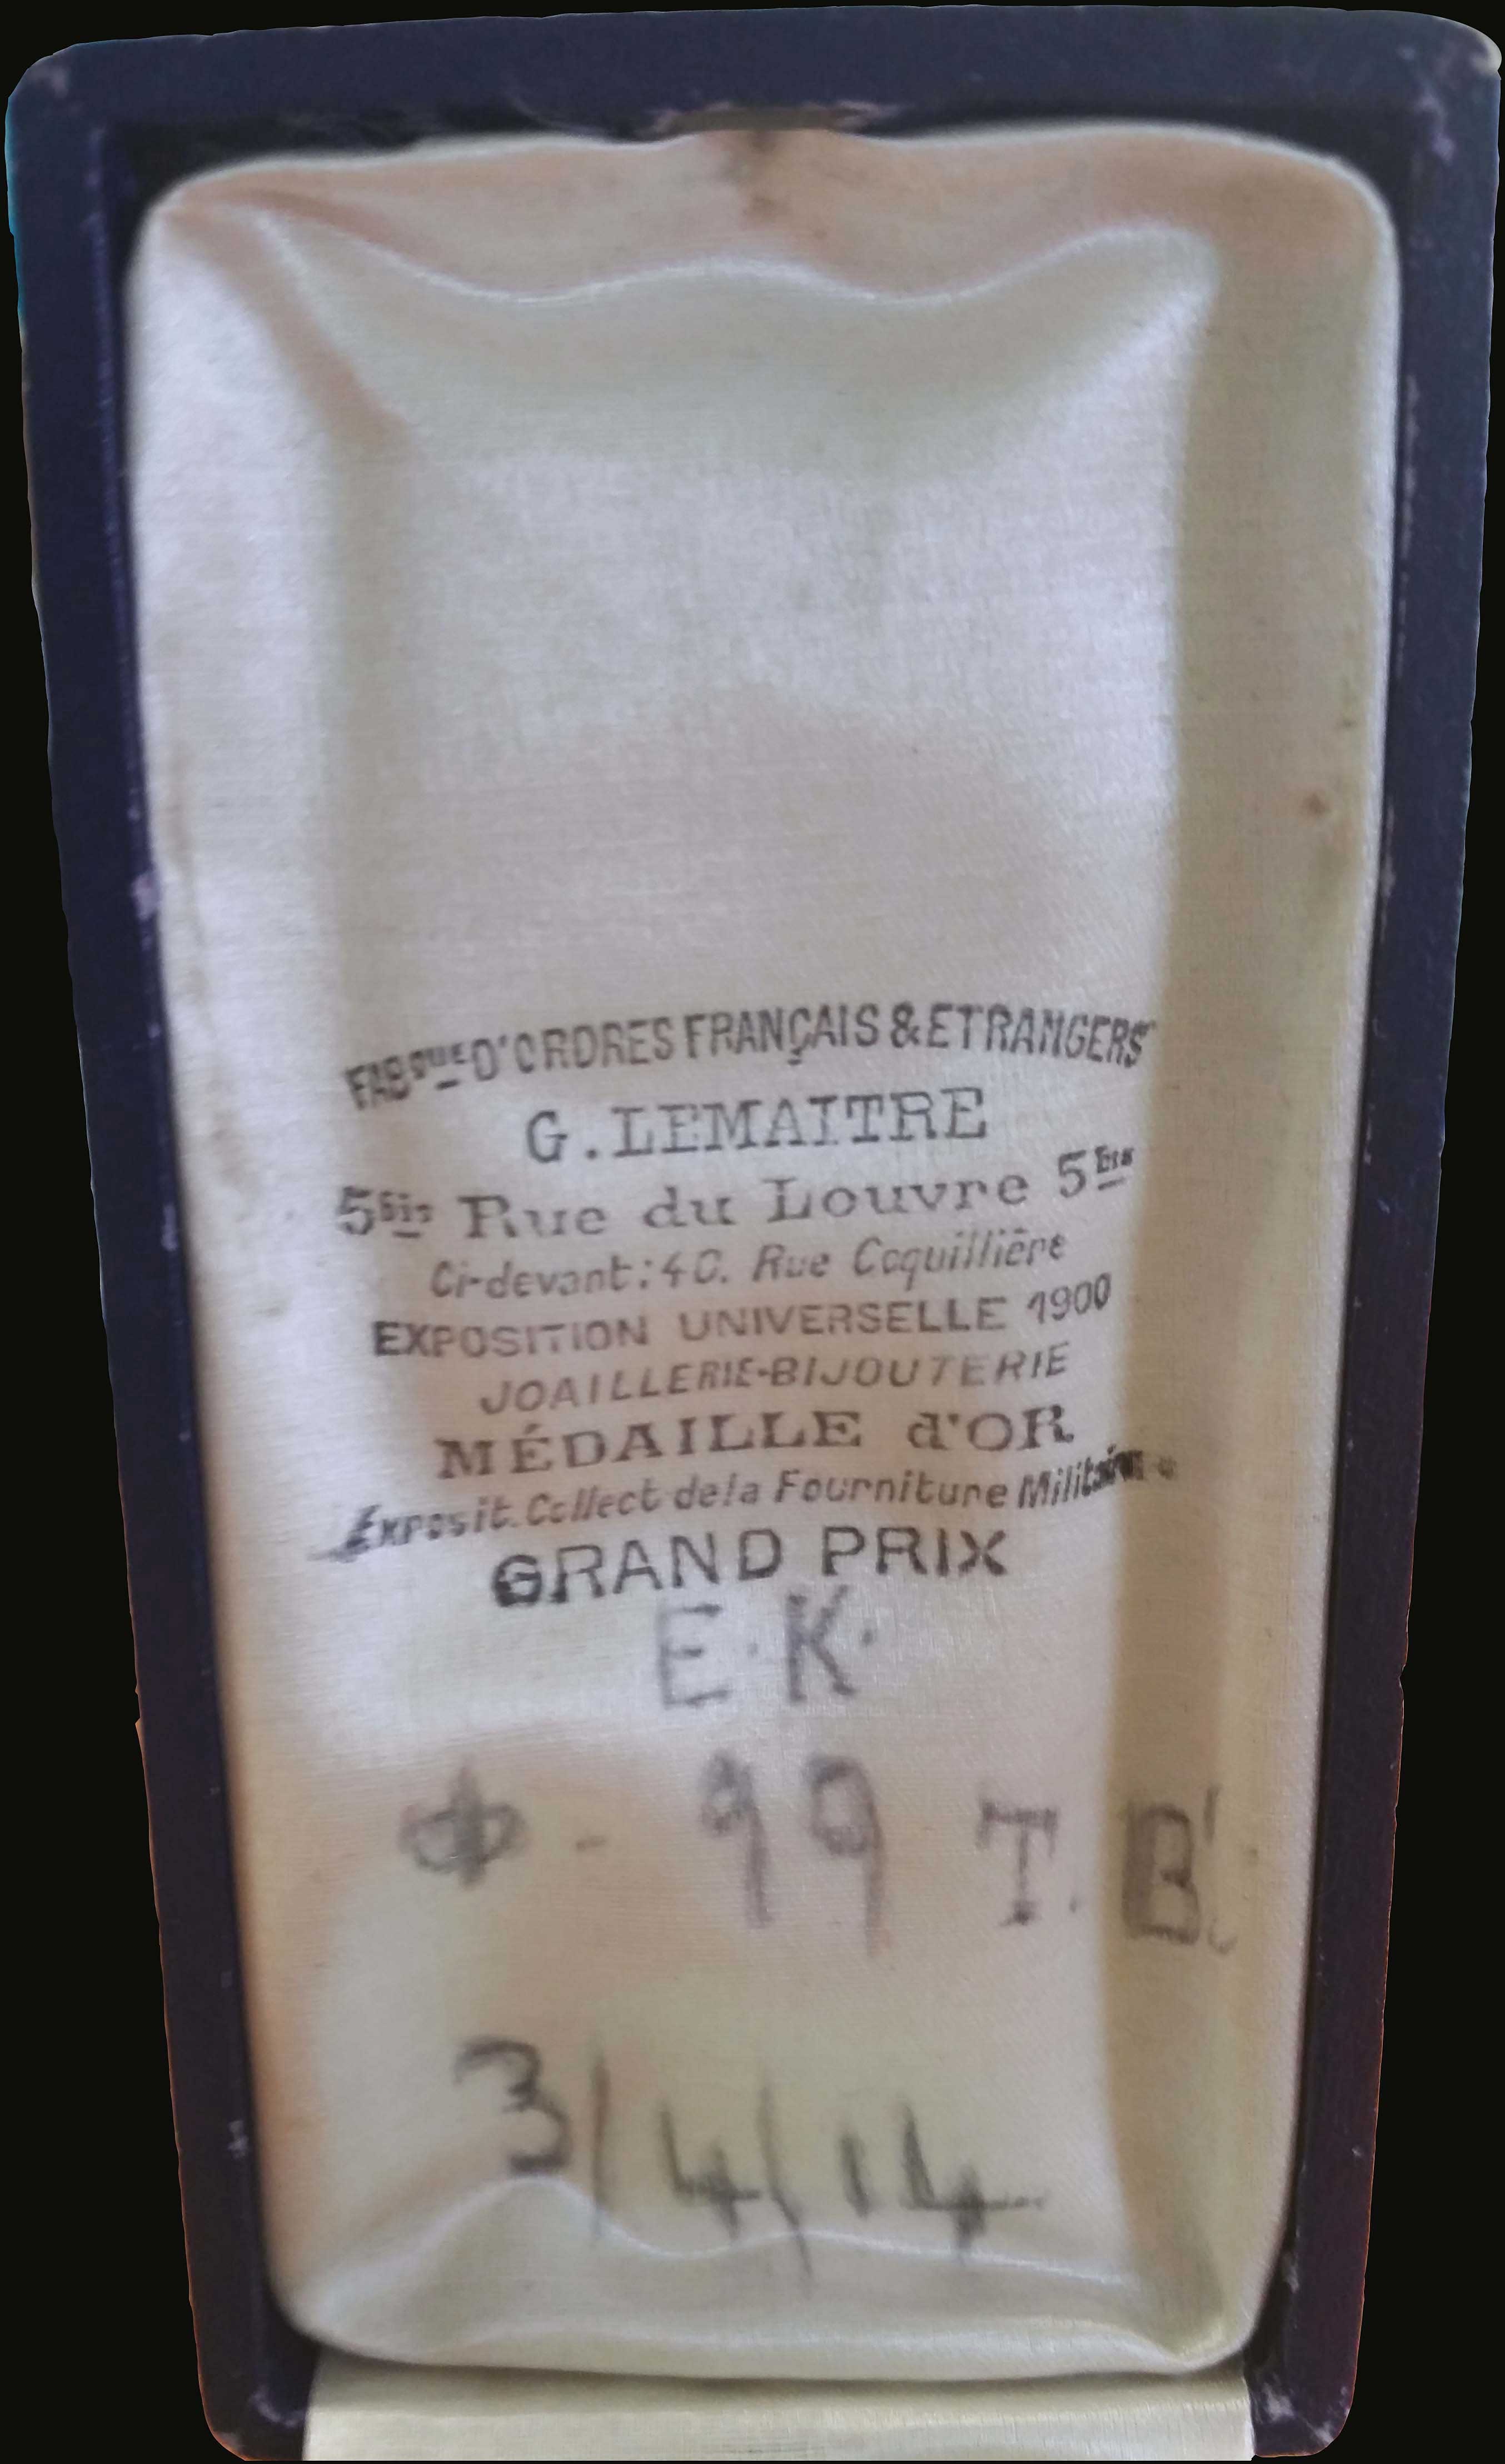 FABQUE D'ORDRES FRANÇAIS & ETRANGERS
G. LEMAITRE
5Bis Rue du Louvre 5Bis
Ci-devant: 40. Rue Coquillière
EXPOSITION UNIVERSELLE 1900
JOAILLERIE-BIJOUTERIE
MÉDAILLE d'OR
Exposit. Collect de la Fourniture Militaire
GRAND PRIX
E.K.
Φ - 99 T. B.
3/4/14